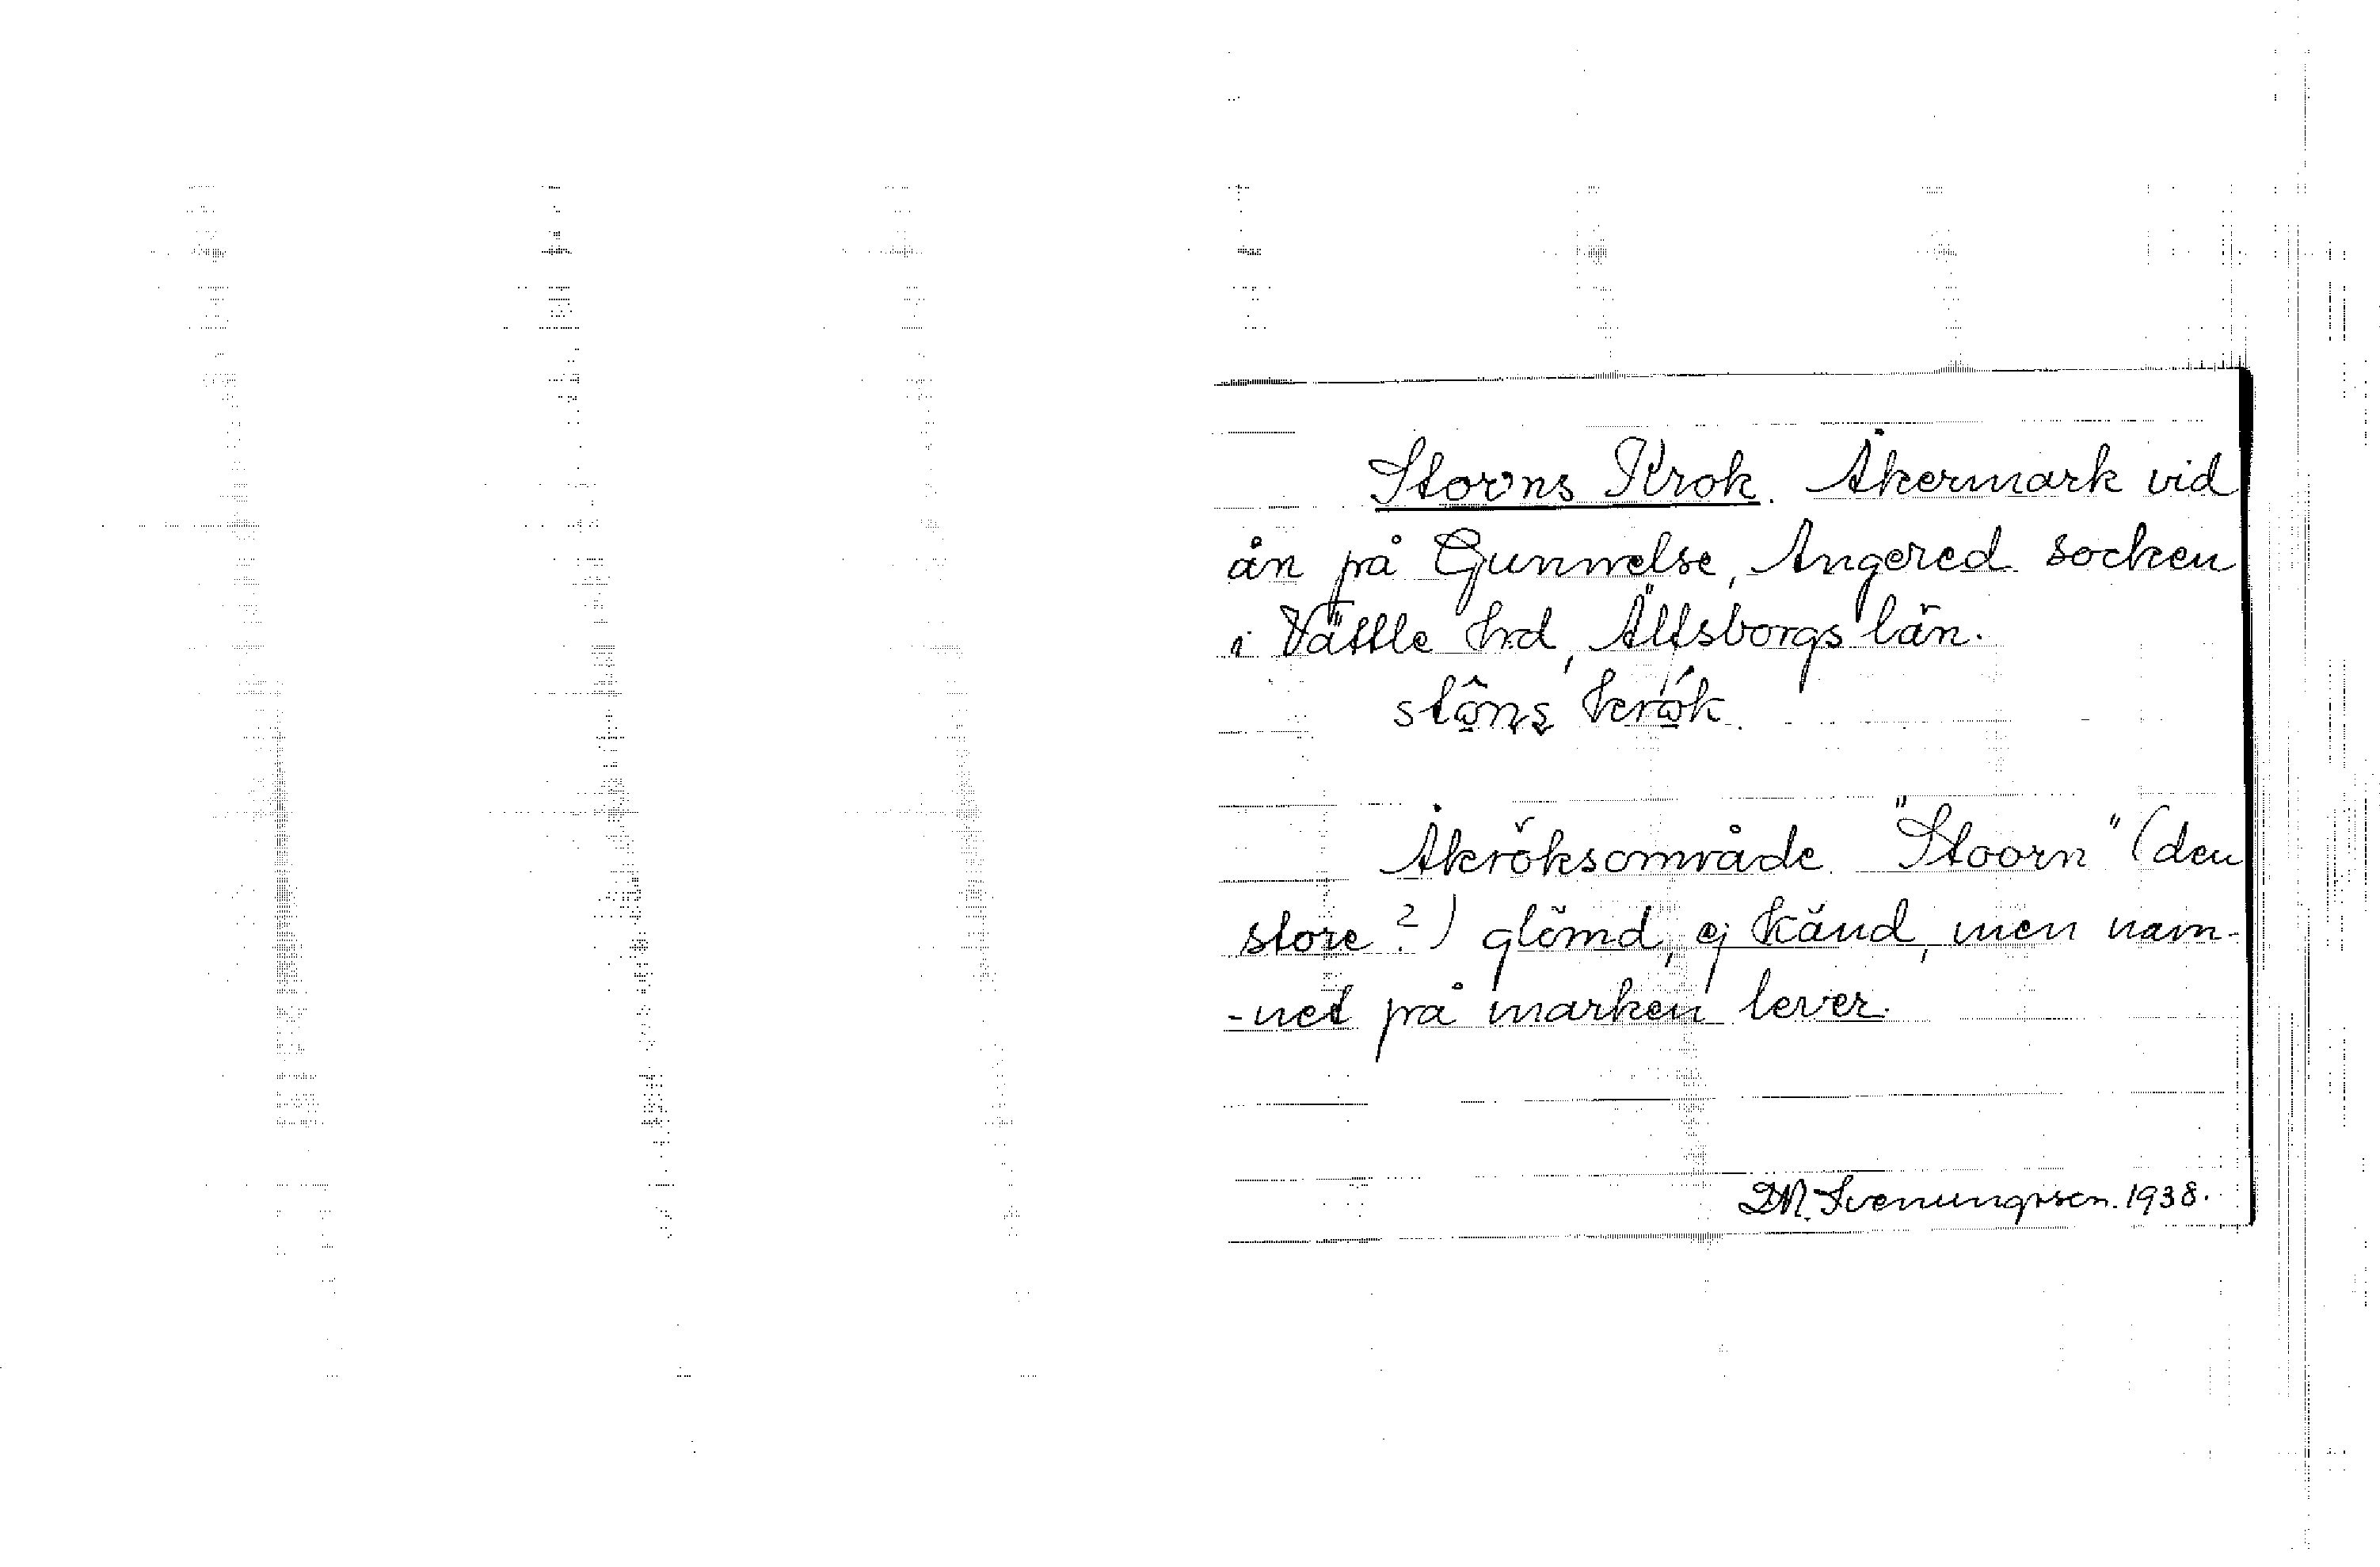 Storns Krok. Åkermark vid
ån på Gunnelse, Angered socken
i Vättle hrd, Älfsborgs län.
stôns krók.
Åkröksområde. "Stoorn" (den
store?) glömd, ej känd, men nam-
-net på marken lever.
D.N. Svenungsson. 1938.